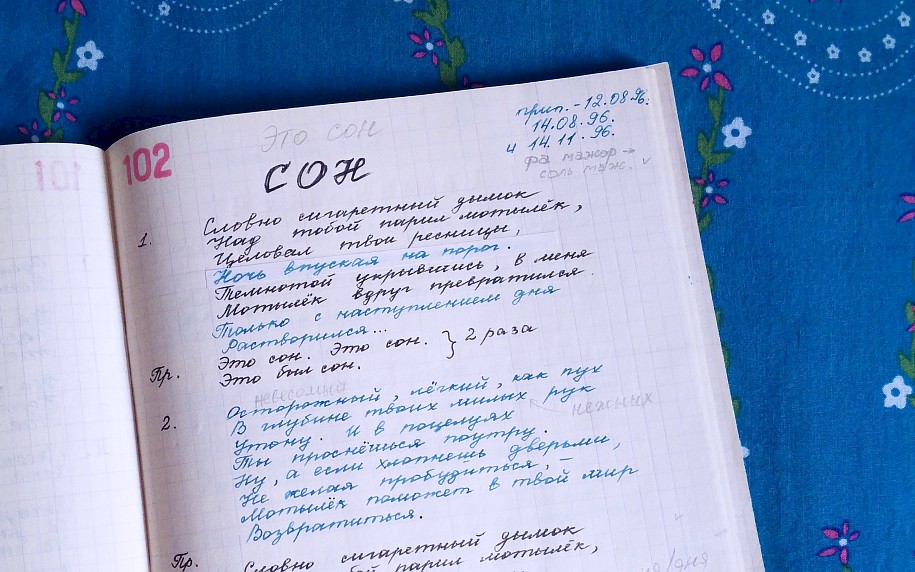 101
102
Это сон
СОН
прип. - 12.08.96.
14.08.96.
и 14.11.96.
фа мажор →
соль маж. ✓
1. Словно сигаретный дымок
Над тобой парил мотылёк,
Целовал твои ресницы,
Ночь впуская на порог.
Темнотой укрывшись, в меня
Мотылёк вдруг превратился.
Только с наступлением дня
Растворился...
Пр. Это сон. Это сон. } 2 раза
Это был сон.
невесомый
2. Осторожный, лёгкий, как пух
В глубине твоих милых рук
нежных
Утону. И в поцелуях
Ты проснёшься поутру.
Ну, а если хлопнешь дверьми,
Не желая пробудиться, –
Мотылёк поможет в твой мир
Возвратиться.
Пр. Словно сигаретный дымок
парил мотылёк,